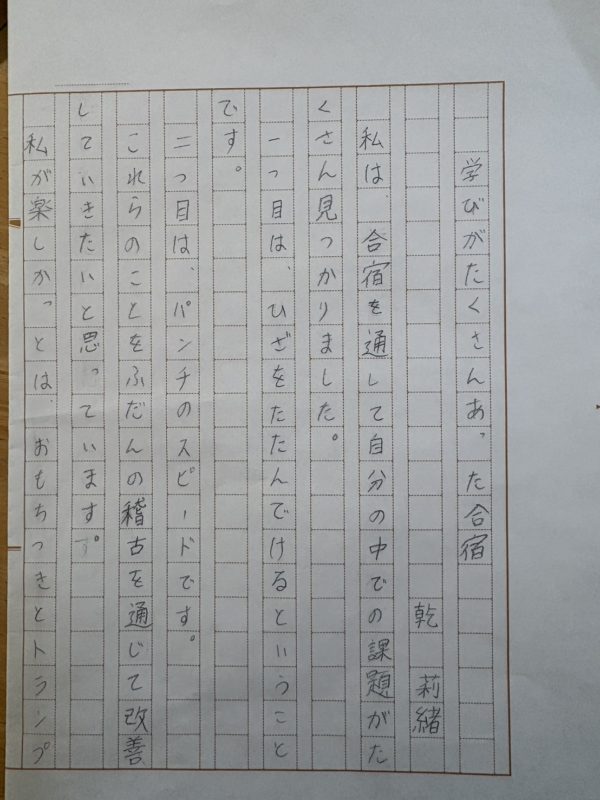 学びがたくさんあった合宿
乾 莉緒
私は、合宿を通して自分の中での課題がた
くさん見つかりました。
一つ目は、ひざをたたんでけるということ
です。
二つ目は、パンチのスピードです。
これらのことをふだんの稽古を通じて改善
していきたいと思っています。
私が楽しかっとは、おもちつきとトランプ